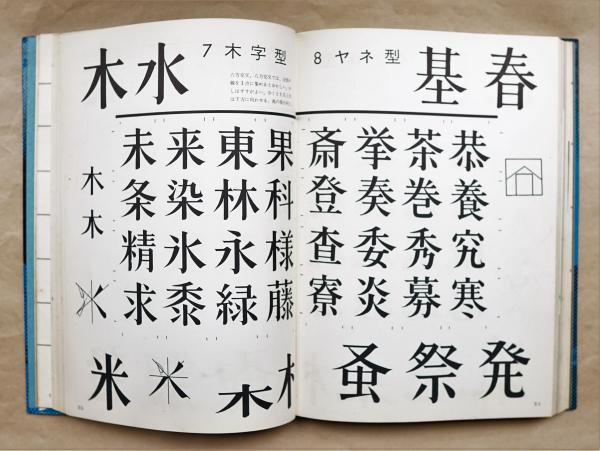 7木字型
木水
未来東果
条染林科
精氷永様
求黍緑藤
木
木
米
木
8ヤネ型
基春
斎挙茶恭
登奏巻養
査委秀究
寮炎募寒
蚤祭発